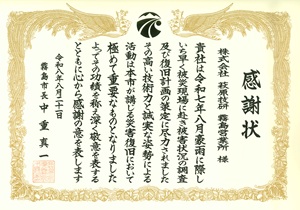 感謝状
株式会社 萩原技研 霧島営業所 様
貴社は令和七年八月豪雨に際し
いち早く被災現場に赴き被害状況の調査
及び復旧計画の策定に尽力されました
その高い技術力と誠実な姿勢による
活動は本市が講じる災害復旧において
極めて重要なものとなりました
よってその功績を称え深く敬意を表する
とともに心から感謝の意を表します
令和八年八月二十一日
霧島市長 中重真一